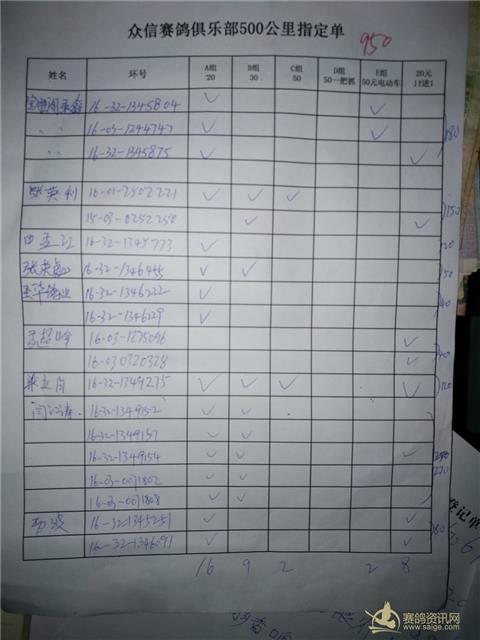 众信赛鸽俱乐部500公里指定单
950
姓名 环号 A组 20 B组 30 C组 50 D组 50一把抓 E组 50元电动车 20元 11进1
16-32-1345804 ✓ ✓
16-03-1244747 ✓ ✓ 180
16-32-1345875 ✓ ✓
张英利 16-01-2502221 ✓ ✓ ✓
15-03-0252250 ✓ ✓ 150
田孟江 16-32-1345773 ✓ 20
16-32-1346455 ✓ ✓ 50
16-32-1346222 ✓
16-32-1346229 ✓ 40
16-03-1275096 ✓
16-030320328 ✓ 40
16-32-1349275 ✓ ✓ ✓ ✓ 120
16-32-1349152 ✓ ✓
16-32-1349157 ✓ ✓
16-32-1349154 ✓ ✓ ✓
16-03-0071802 ✓ ✓ 270
16-03-0071808 ✓ ✓
16-32-1345251 ✓ ✓
16-32-1346091 ✓ ✓ 80
16 9 2 2 8
登记单
赛鸽资讯网
www.saige.com